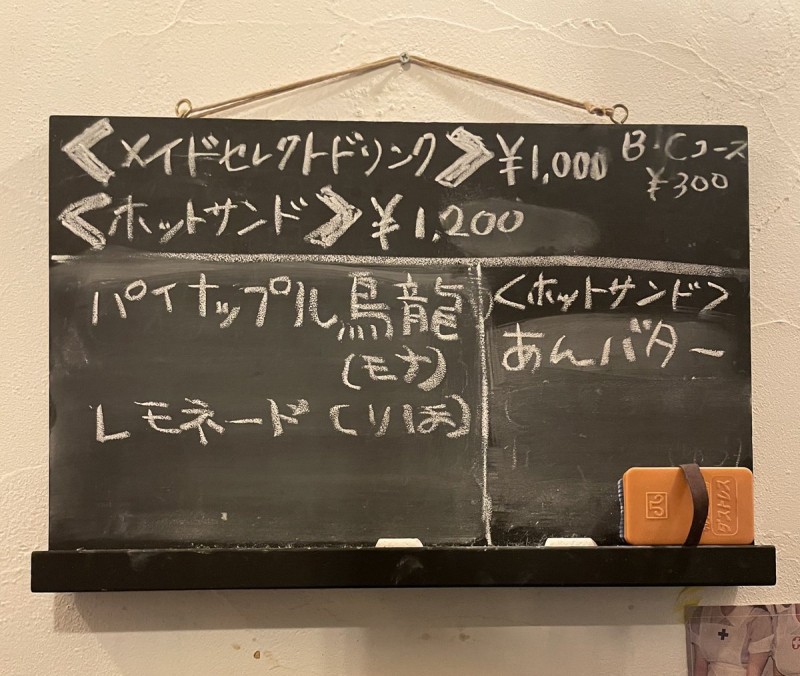 《メイドセレクトドリンク》¥1,000 B・Cコース
¥300
《ホットサンド》¥1,200
パイナップル烏龍
(モナ)
レモネード (りほ)
<ホットサンド>
あんバター
ダストレス